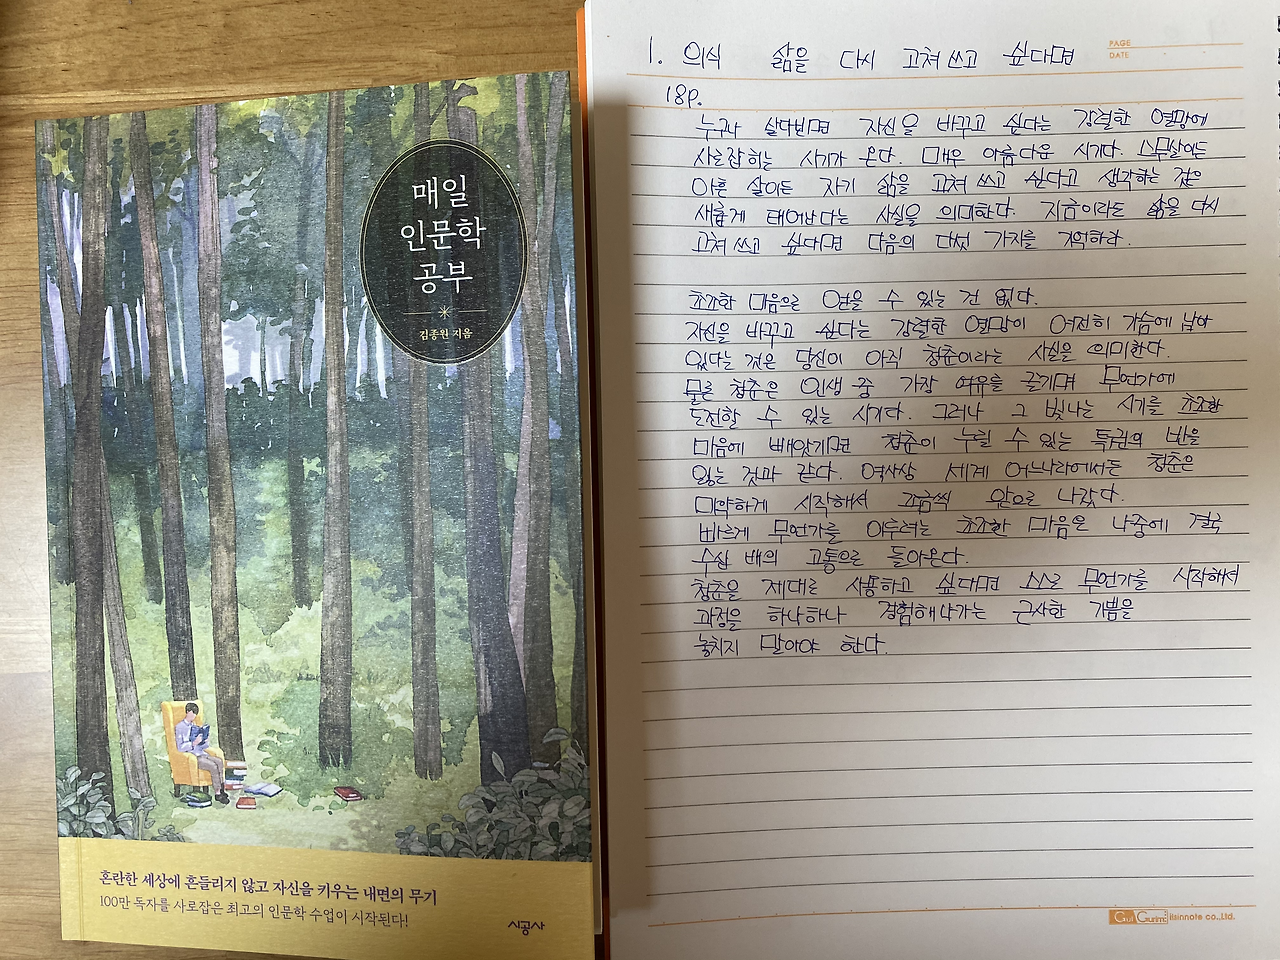 매일
인문학
공부
김종원 지음
혼란한 세상에 흔들리지 않고 자신을 키우는 내면의 무기
100만 독자를 사로잡은 최고의 인문학 수업이 시작된다!
시공사
PAGE
DATE
1. 의식 삶을 다시 고쳐 쓰고 싶다면
18p.
누구나 살다보면 자신을 바꾸고 싶다는 강렬한 열망에
사로잡히는 시기가 온다. 매우 아름다운 시기다. 스무살이든
아흔 살이든 자기 삶을 고쳐 쓰고 싶다고 생각하는 것은
새롭게 태어난다는 사실을 의미한다. 지금이라도 삶을 다시
고쳐 쓰고 싶다면 다음의 다섯 가지를 기억하라.
초조한 마음으로 얻을 수 있는 건 없다.
자신을 바꾸고 싶다는 강렬한 열망이 여전히 가슴에 남아
있다는 것은 당신이 아직 청춘이라는 사실을 의미한다.
물론 청춘은 인생 중 가장 여유를 즐기며 무언가에
도전할 수 있는 시기다. 그러나 그 빛나는 시기를 초조한
마음에 빼앗기면 청춘이 누릴 수 있는 특권의 반을
잃는 것과 같다. 역사상 세계 어느나라에서든 청춘은
미약하게 시작해서 조금씩 앞으로 나갔다.
빠르게 무언가를 이루려는 초조한 마음은 나중에 결국
수십 배의 고통으로 돌아온다.
청춘을 제대로 사용하고 싶다면 스스로 무언가를 시작해서
과정을 하나하나 경험해나가는 근사한 기쁨을
놓치지 말아야 한다.
Gui Gurim: ilsinnote co.,Ltd.